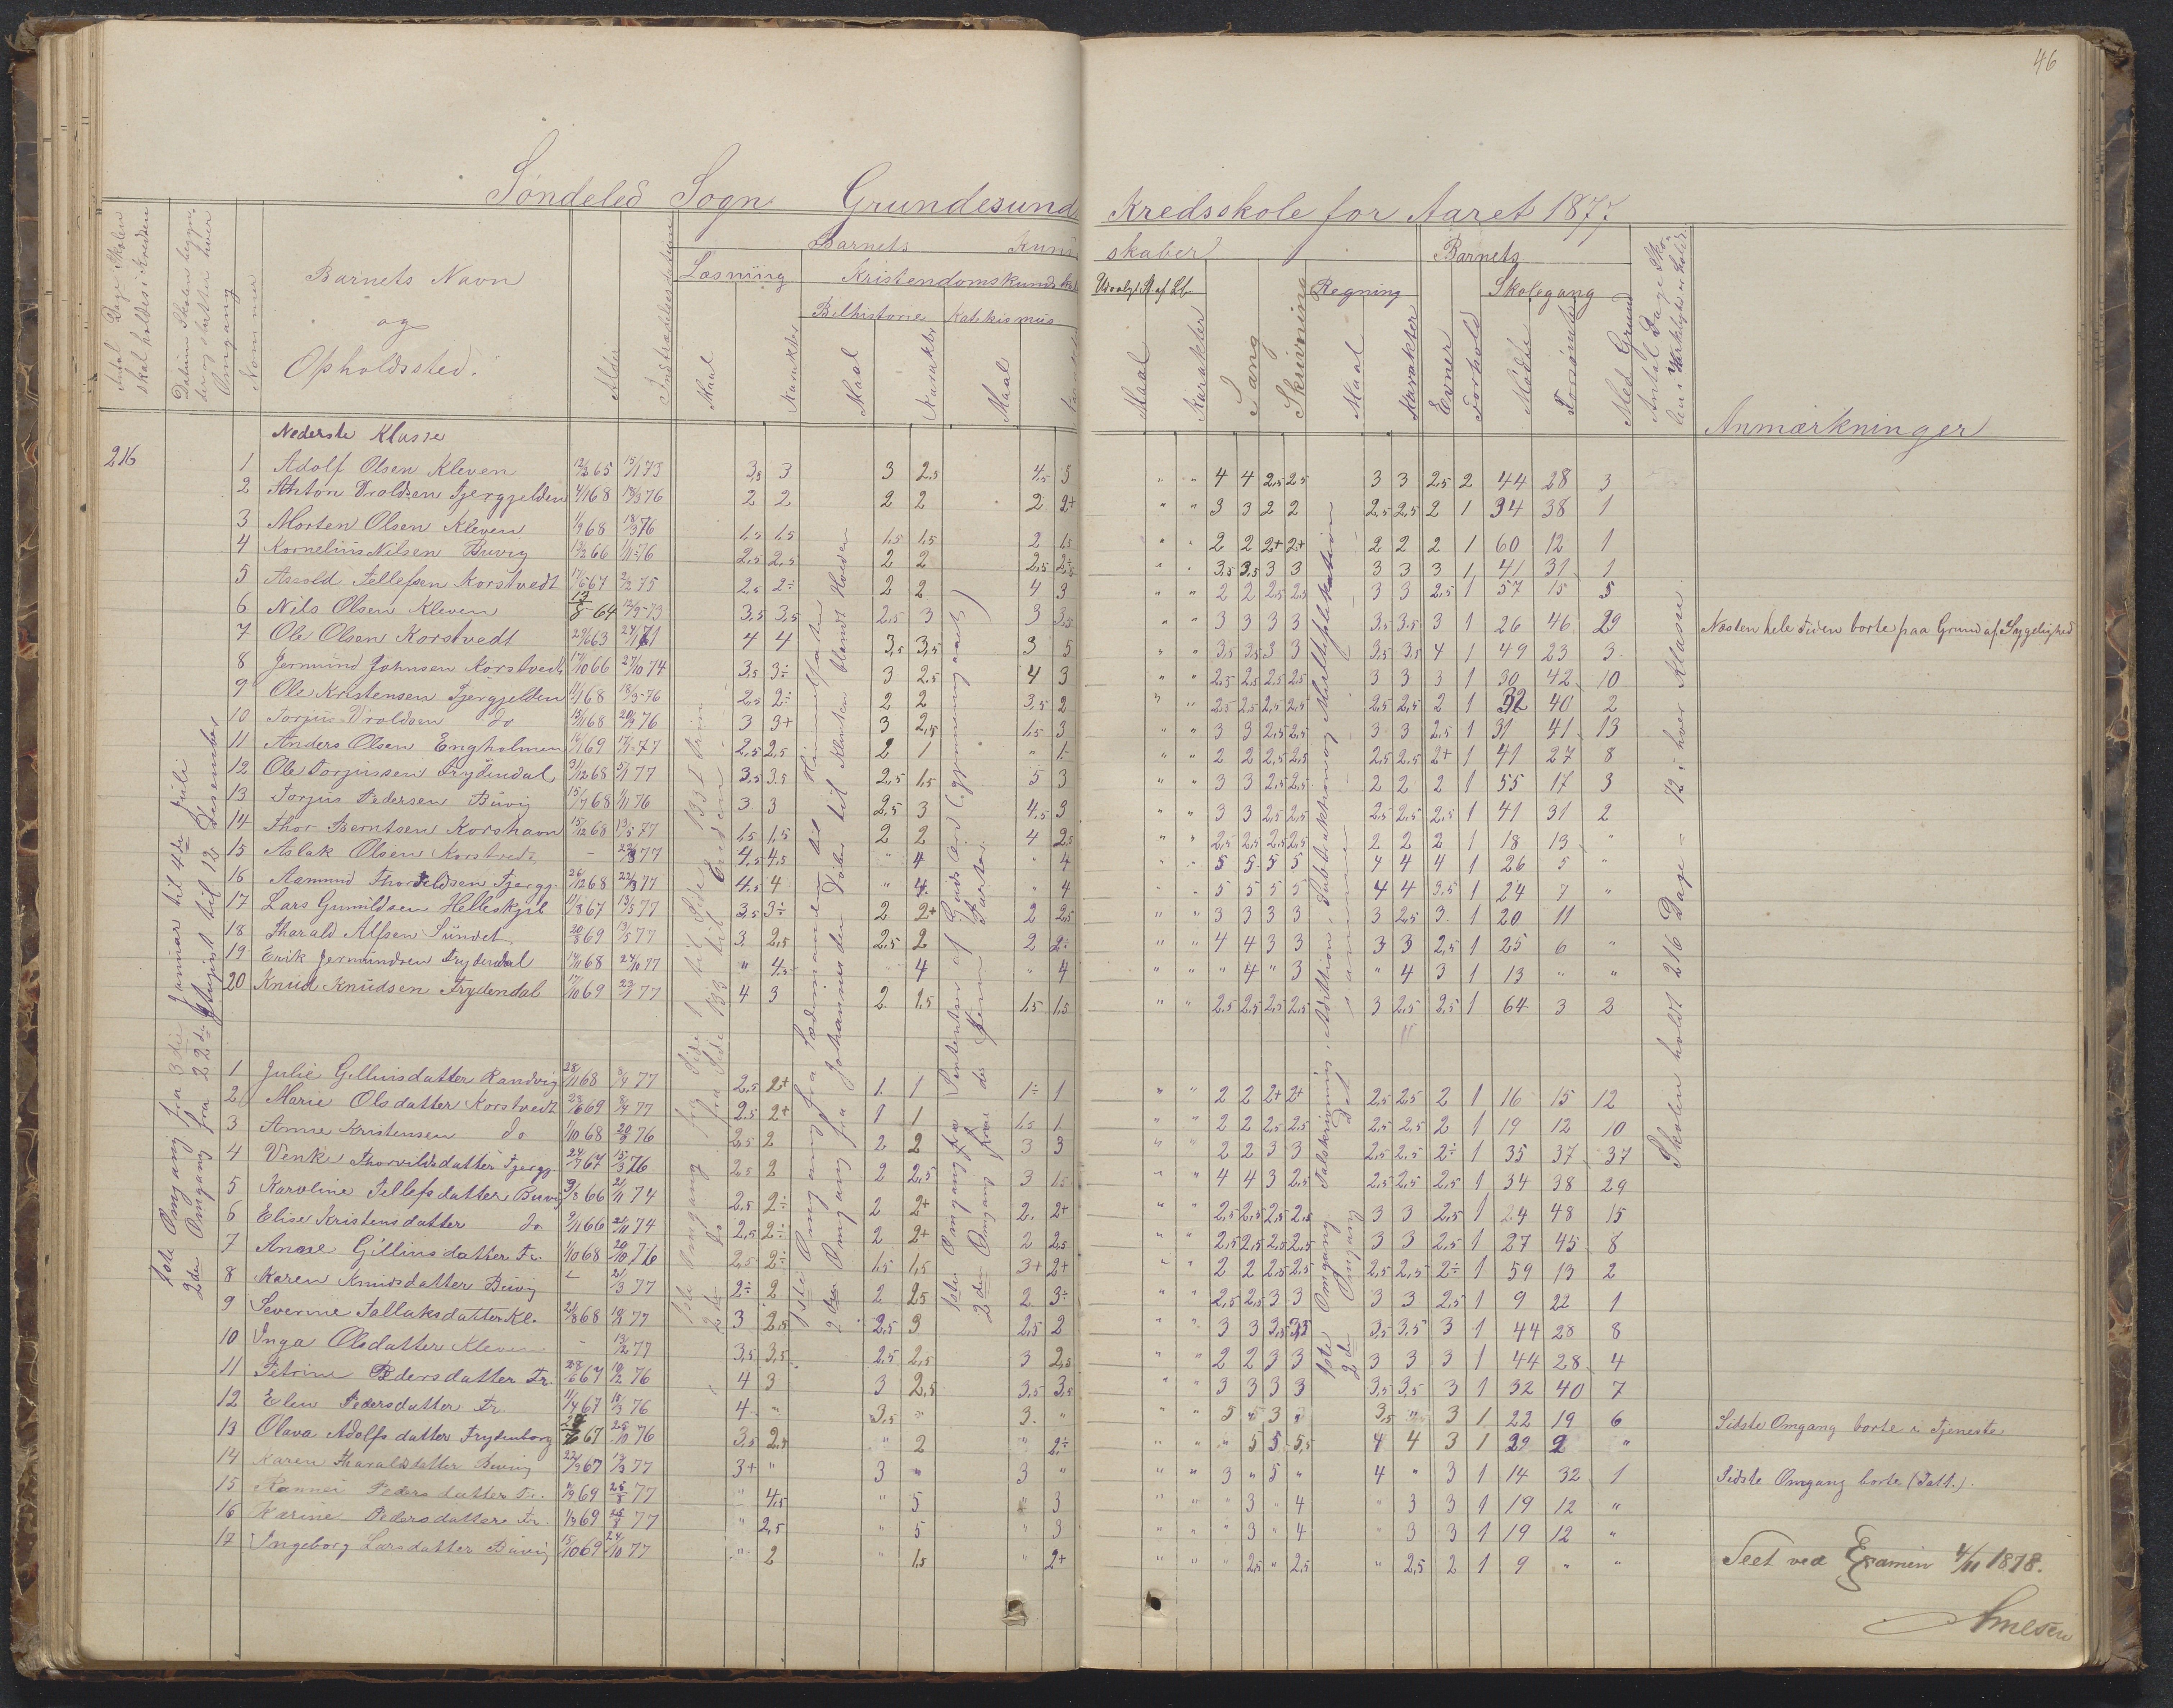 46
Søndeled Sogn Grundesund Kredsskole for Aaret 1877
Antal Dage Skolen skal holdes i Kredsen
Datum Skolen begynder og slutter hver Omgang
Nommer
Barnets Navn
og
Opholdssted.
Alder
Indtrædelsesdatum
Barnets Kundskaber
Læsning
Kristendomskundskab
Bibelhistorie
Katekismus
Maal
Karakter
Maal
Karakter
Maal
Udvalgt St. af Lb.
Maal
Karakter
Sang
Skrivning
Regning
Maal
Karakter
Barnets
Evner
Forhold
Skolegang
Mødte
Forsømte
Med Grund
Antal Dage Skolen i Virkeligheden holdt
Anmærkninger
Nederste Klasse
216
1 Adolf Olsen Kleven 12/2 65 15/1 73 3,5 3 3 2,5 4,5 5 " " 4 4 2,5 2,5 3 3 2,5 2 44 28 3
2 Anton Droldsen Fjergjelden 4/1 68 18/3 76 2 2 2 2 2 2+ " " 3 3 2 2 2,5 2,5 2 1 34 38 1
3 Morten Olsen Kleven 1/9 68 18/3 76 1,5 1,5 1,5 1,5 2 1,5 " " 2 2 2+ 2+ 2 2 2 1 60 12 1
4 Kornelius Nilsen Buvig 66 76 2,5 2,5 2 2 2,5 " " 3,5 3,5 3 3 3 3 3 1 41 31 1
5 Tellefsen Korstvedt 67 75 2,5 2÷ 2 2 4 3 " " 2 2 2,5 2,5 3 3 2,5 1 57 15 5
6 Nils Olsen Kleven 13/8 64 73 3,5 3,5 2,5 3 3 3,5 " " 3 3 3 3 3,5 3,5 3 1 26 46 29 Næsten hele Tiden borte paa Grund af Sygelighed
7 Ole Olsen Korstvedt 63 71 4 4 3,5 3,5 3 5 " " 3,5 3,5 3 3 3,5 3,5 4 1 49 23 3
8 Jermund Johnsen Korstvedt 17/10 66 27/10 74 3,5 3÷ 3 2,5 4 3 " " 2,5 2,5 2,5 2,5 3 3 3 1 30 42 10
9 Ole Kristensen Fjergjelden 11/1 68 18/3 76 2,5 2÷ 2 2 3,5 2 " " 2,5 2,5 2,5 2,5 2,5 2,5 2 1 32 40 2
10 Torjus Droldsen do 68 76 3 3+ 3 2,5 1,5 3 " " 3 3 2,5 2,5 3 3 2,5 1 31 41 13
11 Anders Olsen Engholmen 69 77 2,5 2,5 2 1 " 1 " " 2 2 2,5 2,5 2,5 2,5 2+ 1 41 27 8
12 Ole Torjussen Frydendal 31/12 68 5/1 77 3,5 3,5 2,5 1,5 5 3 " " 3 3 2,5 2,5 2 2 2 1 55 17 3
13 Torjus Pedersen Buvig 15/7 68 76 3 3 2,5 3 4,5 3 " " 3 3 2,5 2,5 2,5 2,5 2,5 1 41 31 2
14 Thor Berntsen Korshavn 15/12 68 13/5 77 1,5 1,5 2 2 4 2,5 " " 2,5 2,5 2,5 2,5 2 2 2 1 18 13 "
15 Aslak Olsen Korstvedt - 77 4,5 4,5 " 4 " 4 " " 5 5 5 5 4 4 4 1 26 5 "
16 Aamund Thorvildsen Fjergj. 26/12 68 22/3 77 4,5 4 " 4 " 4 " " 5 5 5 5 4 4 3,5 1 24 7 "
17 Lars Gunnildsen Helleskjil 11/8 67 13/5 77 3,5 3÷ 2 2+ 2 2,5 " " 3 3 3 3 3 2,5 3 1 20 11
18 Tharald Alfsen Sundet 20/8 69 13/5 77 3 2,5 2,5 2 2 2÷ " " 4 4 3 3 3 3 2,5 1 25 6 "
19 Erik Jermundsen Frydendal 68 24/10 77 " 4,5 4 " 4 " " " 4 " 3 " 4 3 1 13 " "
20 Knud Knudsen Frydendal 17/10 69 77 4 3 2 1,5 1,5 1,5 " " 2,5 2,5 2,5 2,5 3 2,5 2,5 1 64 3 2
1 Julie Gellinisdatter Randvig 28/11 68 77 2,5 2+ 1 1 1÷ 1 " " 2 2 2+ 2+ 2,5 2,5 2 1 16 15 12
2 Marie Olsdatter Korstvedt 69 77 2,5 2+ 1 1 1,5 1 " " 2 2 2,5 2,5 2,5 2,5 2 1 19 12 10
3 Anne Kristensen do 1/10 68 76 2,5 2 2 2 3 3 " " 2 2 3 3 2,5 2,5 2÷ 1 35 37 37
4 Venke Thorvildsdatter Fjergj. 67 76 2,5 2 2 2,5 3 1,5 " " 4 4 3 2,5 2,5 2,5 2,5 1 34 38 29
5 Karoline Tellefsdatter Buvig 66 74 2,5 2÷ 2 2+ 2 2+ " " 2,5 2,5 2,5 2,5 3 3 2,5 1 24 48 15
6 Elise Kristensdatter do 9/11 66 74 2,5 2÷ 2 2+ 2 2,5 " " 2,5 2,5 2,5 2,5 3 3 2,5 1 27 45 8
7 Anne Gellinisdatter Fr. 1/10 68 20/10 76 2,5 2÷ 1,5 1,5 3+ 2+ " " 2 2 2,5 2,5 2,5 2,5 2÷ 1 59 13 2
8 Karen Knudsdatter Buvig - 77 2÷ 2 2 2,5 2 3÷ " " 2,5 2,5 3 3 3 3 2,5 1 9 22 1
9 Severine Tallaksdatter Kl. 68 77 3 2,5 2,5 3 2,5 2 " " 3 3 3,5 3,5 3,5 3,5 3 1 44 28 8
10 Inga Olsdatter Kleven - 77 3,5 3,5 2,5 2,5 3 2,5 " " 2 2 3 3 3 3 3 1 44 28 4
11 Petrine Pedersdatter Fr. 67 76 4 3 3 2,5 3,5 3,5 " " 3 3 3 3 3,5 3,5 3 1 32 40 7
12 Elen Pedersdatter Fr. 67 76 4 " 3,5 " 3 " " " 5 " 3 " 3,5 " 3 1 22 19 6 Sidste Omgang borte i Tjeneste
13 Olava Adolfsdatter Frydenborg 67 25/10 76 3,5 2,5 " 2 " 2÷ " " " 5 5 5,5 4 4 3 1 29 2 "
14 Karen Tharaldsdatter Buvig 67 77 3+ " 3 " 3 " " " 3 " 5 " 4 " 3 1 14 32 1 Sidste Omgang borte (Tatt.).
15 Rannei Pedersdatter Fr. 69 25/8 77 " 4,5 " 5 " 3 " " " 3 " 4 " 3 3 1 19 12 "
16 Karine Pedersdatter Fr. 69 25/8 77 " 2,5 " 5 " 3 " " " 3 " 4 " 3 3 1 19 12 "
17 Ingeborg Larsdatter Buvig 15/10 69 24/10 77 " 2 " 1,5 " 2+ " " " 2,5 " 2,5 " 2,5 2 1 9 " "
1ste Omgang fra 3die Januar til 4de Juli
2den Omgang fra 22de August til 12 Desember
1ste Omgang fra Side 1 til Side 133 I Trin
2den Do fra Side 133 til Enden
1ste Omgang fra Sædemanden til Himmelfarten
2den Omgang fra Johannes den Døber til Klinten blandt Hveden
1ste Omgang fra
2den Omgang fra
1ste Omgang Talskrivning, Addition, Subtraktion og Multiplikation
2den Omgang Det samme
Skolen holdt 216 Dage - 72 i hver Klasse
Seet ved Examen 4/11 1878.